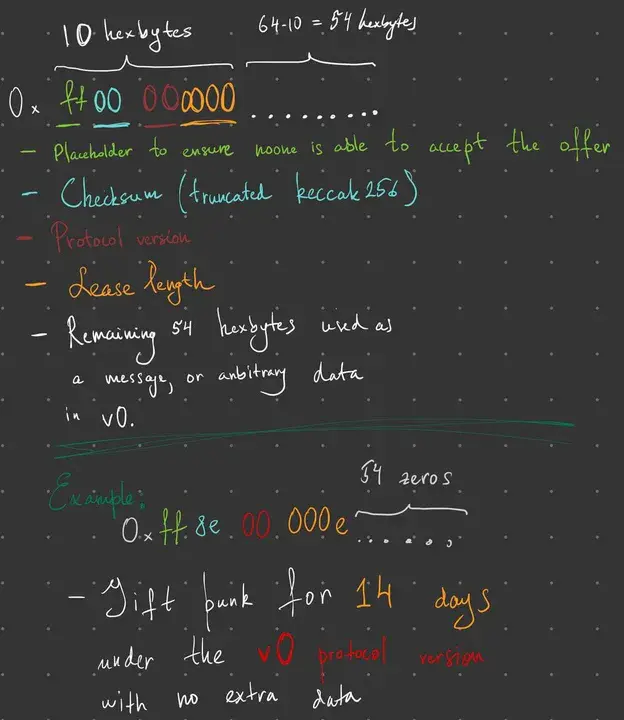 10 hexbytes
64-10 = 54 hexbytes
0x ff00 000000 ........
- Placeholder to ensure noone is able to accept the offer
- Checksum (truncated keccak256)
- Protocol version
- Lease length
- Remaining 54 hexbytes used as
a message, or arbitrary data
in v0.
Example:
54 zeros
0x ff 8e 00 000e ......
- Gift punk for 14 days
under the v0 protocol version
with no extra data